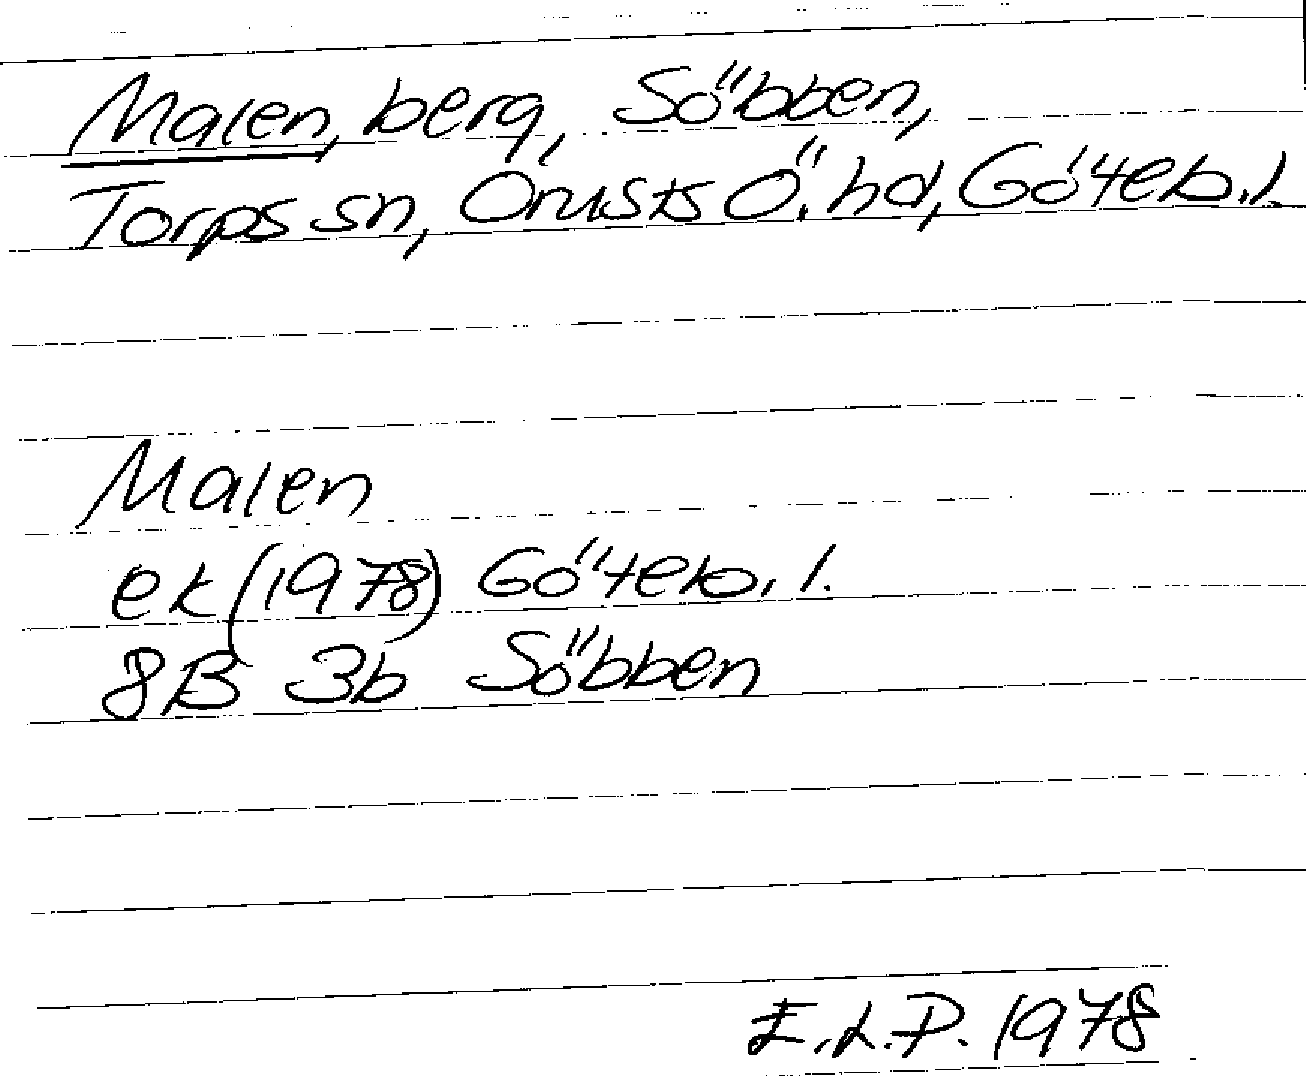 Malen, berg, Söbben,
Torps sn, Orusts Ö. hd, Göteb. l.
Malen
ek (1978) Göteb. l.
8B 3b Söbben
E.L.P. 1978